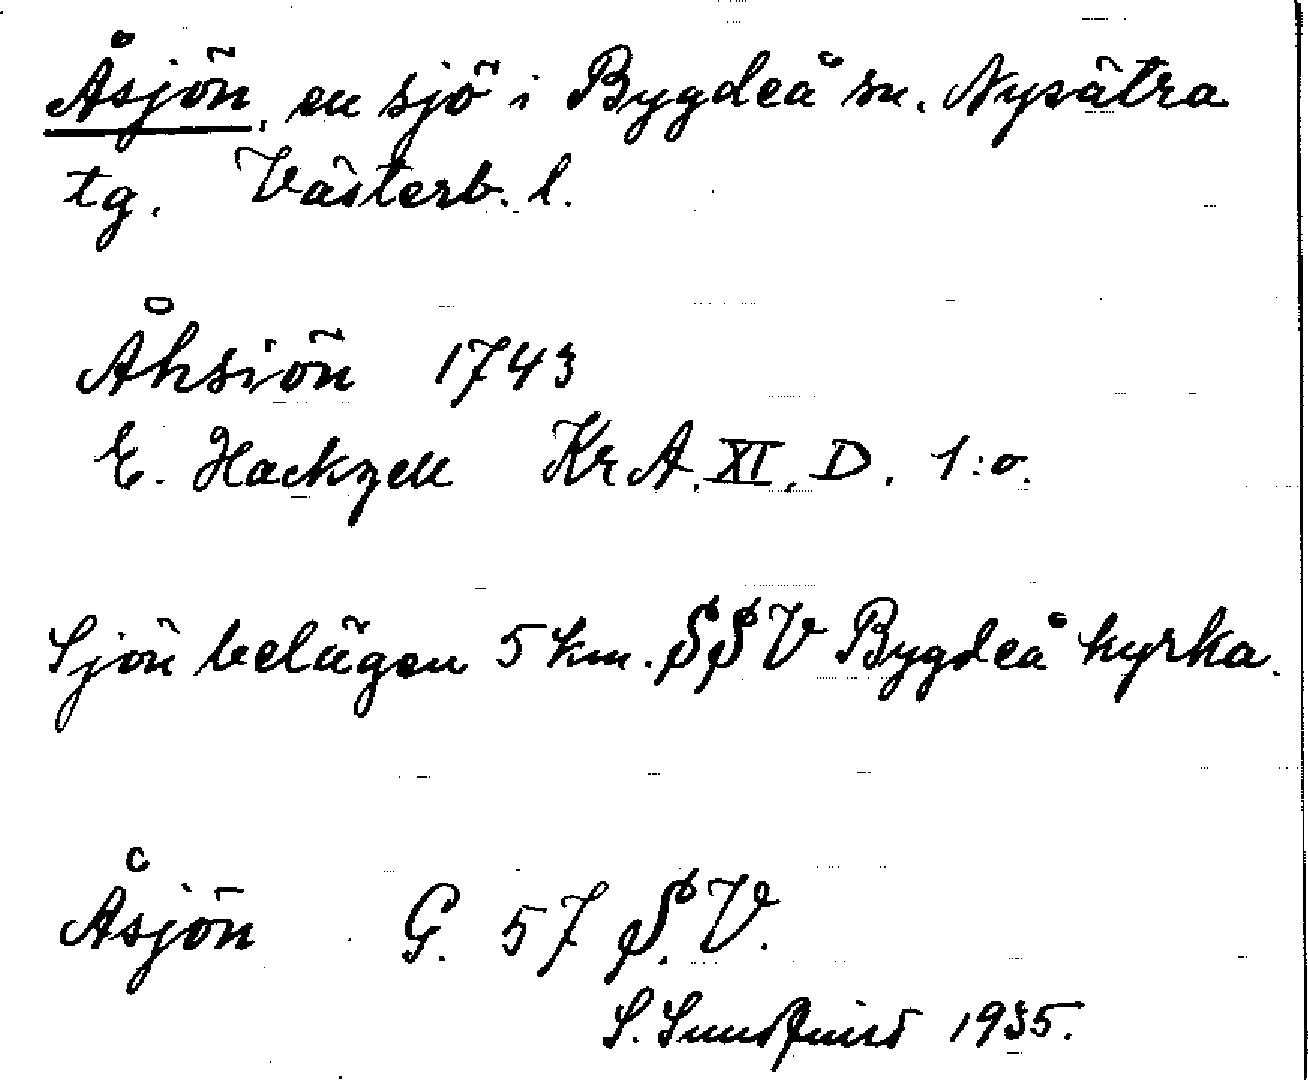 Åsjön, en sjö i Bygdeå sn. Nysätra
tg. Västerb. l.
Åhsiön 1743
E. Hackzell KrA. XI. D. 1:o.
Sjön belägen 5 km. SSV Bygdeå kyrka.
Åsjön G. 57 S.V.
S. Sundquist 1935.